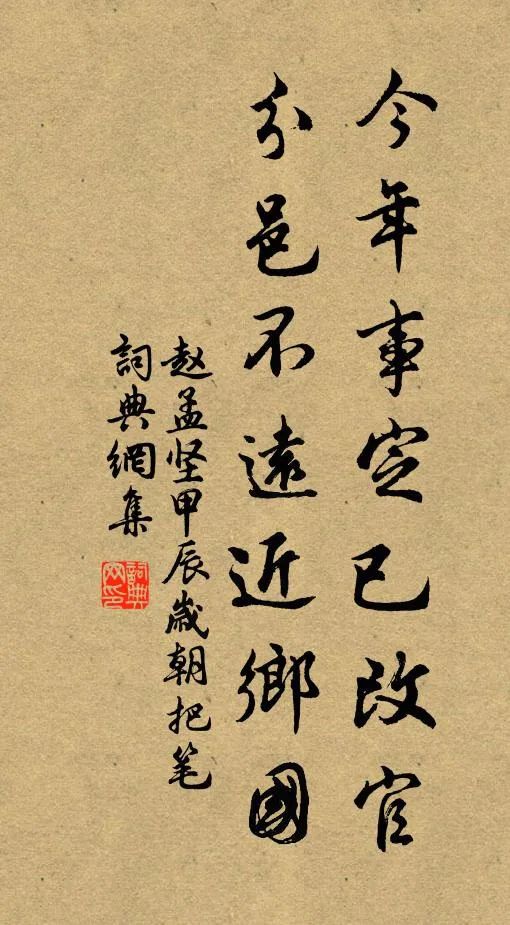 今年事定已改官
分邑不遠近鄉國
赵孟坚甲辰歲朝把笔
詞典網集
詞典網印